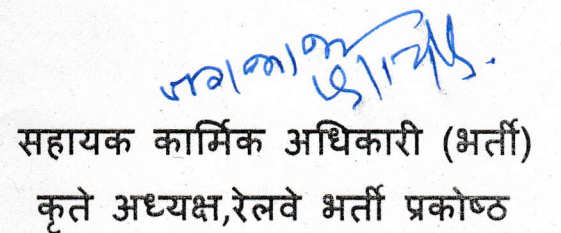 सहायक कार्मिक अधिकारी (भर्ती)
कृते अध्यक्ष,रेलवे भर्ती प्रकोष्ठ